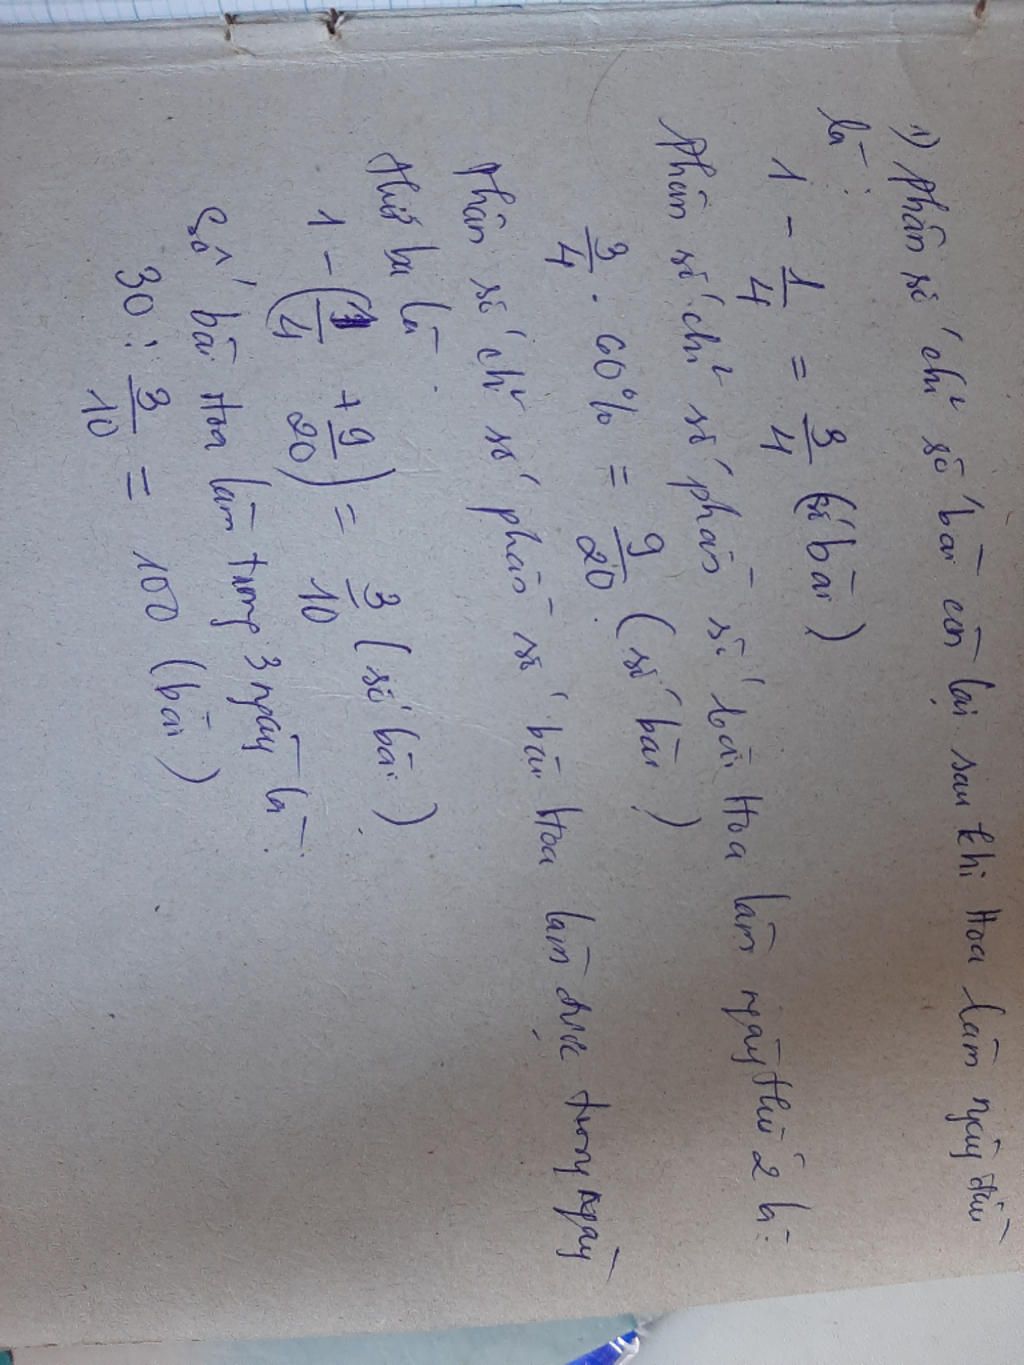 1) Phân số chỉ số bài còn lại sau khi Hoa làm ngày đầu
là:
1 - 1/4 = 3/4 (số bài)
Phân số chỉ số phần số bài Hoa làm ngày thứ 2 là:
3/4 . 60% = 9/20 (số bài)
Phân số chỉ số phần số bài Hoa làm được trong ngày
thứ ba là:
1 - (1/4 + 9/20) = 3/10 (số bài)
Số bài Hoa làm trong 3 ngày là:
30 : 3/10 = 100 (bài)